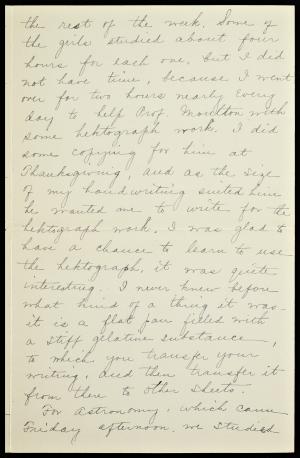 the rest of the week. Some of
the girls studied about four
hours for each one, but I did
not have time, because I went
over for two hours nearly every
day to help Prof. Moulton with
some hektograph work. I did
some copying for him at
Thanksgiving, and as the size
of my handwriting suited him
he wanted me to write for the
hektograph work. I was glad to
have a chance to learn to use
the hektograph, it was quite
interesting. I never knew before
what kind of a thing it was.
it is a flat pan filled with
a stiff gelatine substance,
to which you transfer your
writing, and then transfer it
from there to other sheets.
For Astronomy, which came
Friday afternoon, we studied